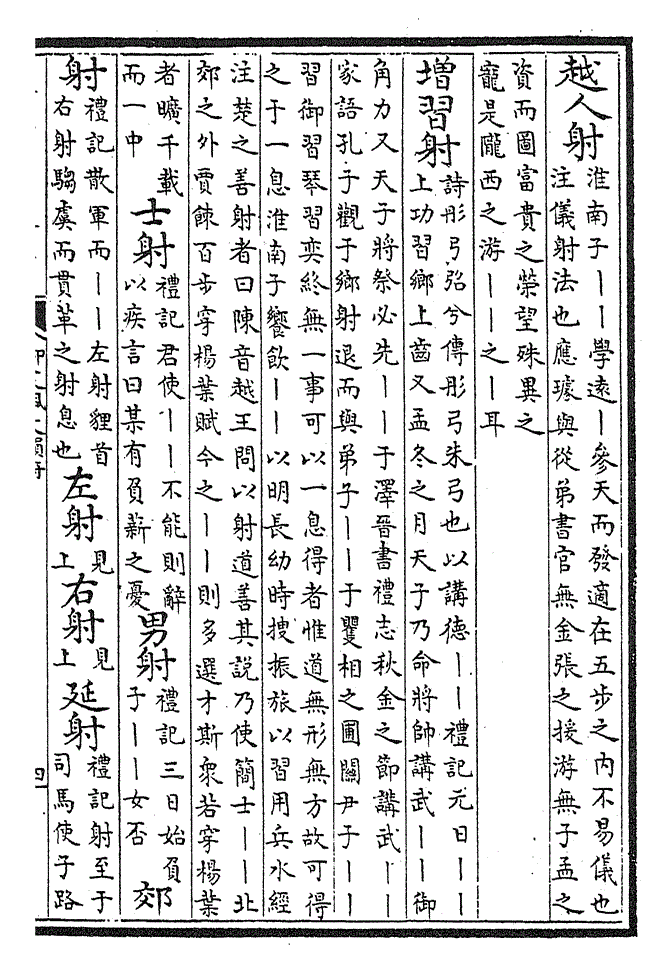 越人射
淮南子丨丨學遠丨參天而發適在五步之內不易儀也
注儀射法也應璩與從弟書官無金張之援游無子孟之
資而圖富貴之榮望殊異之
寵是隴西之游丨丨之丨耳
增習射
詩彤弓弨兮傳彤弓朱弓也以講德丨丨禮記元日丨丨
上功習鄉上齒又孟冬之月天子乃命將帥講武丨丨御
角力又天子將祭必先丨丨于澤晉書禮志秋金之節講武丨丨
家語孔子觀于鄉射退而與弟子丨丨于矍相之圃關尹子丨丨
習御習琴習奕終無一事可以一息得者惟道無形無方故可得
之于一息淮南子饗飲丨丨以明長幼時搜振旅以習用兵水經
注楚之善射者曰陳音越王問以射道善其說乃使簡士丨丨北
郊之外賈餗百步穿楊葉賦今之丨丨則多選才斯衆若穿楊葉
者曠千載
而一中
士射
禮記君使丨丨不能則辭
以疾言曰某有負薪之憂
男射
禮記三日始負
子丨丨女否
郊
射
禮記散軍而丨丨左射貍首
右射騶虞而貫革之射息也
左射
見
上
右射
見
上
延射
禮記射至于
司馬使子路
四